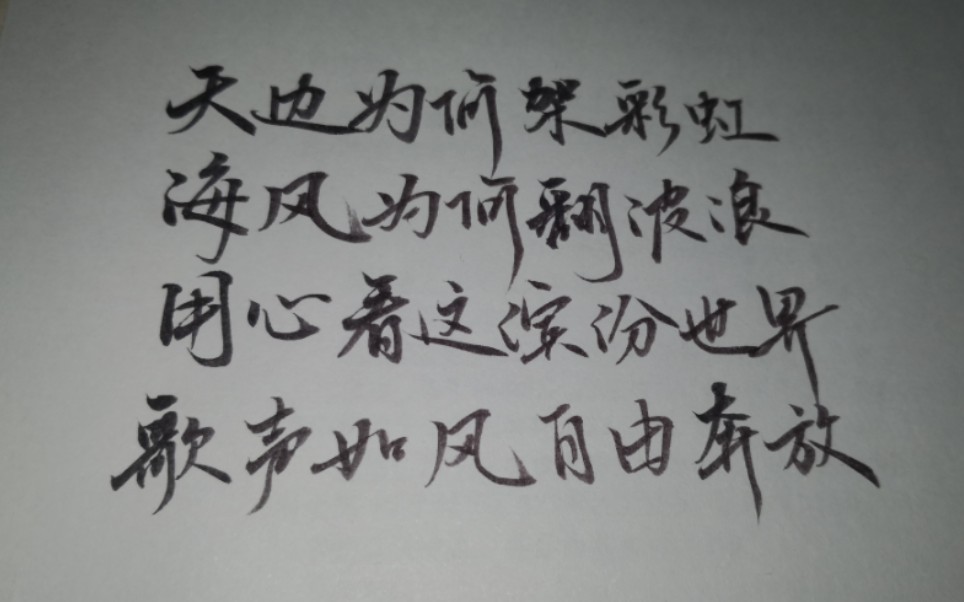 天边为何架彩虹
海风为何翻波浪
用心看这滨份世界
歌声如风自由奔放